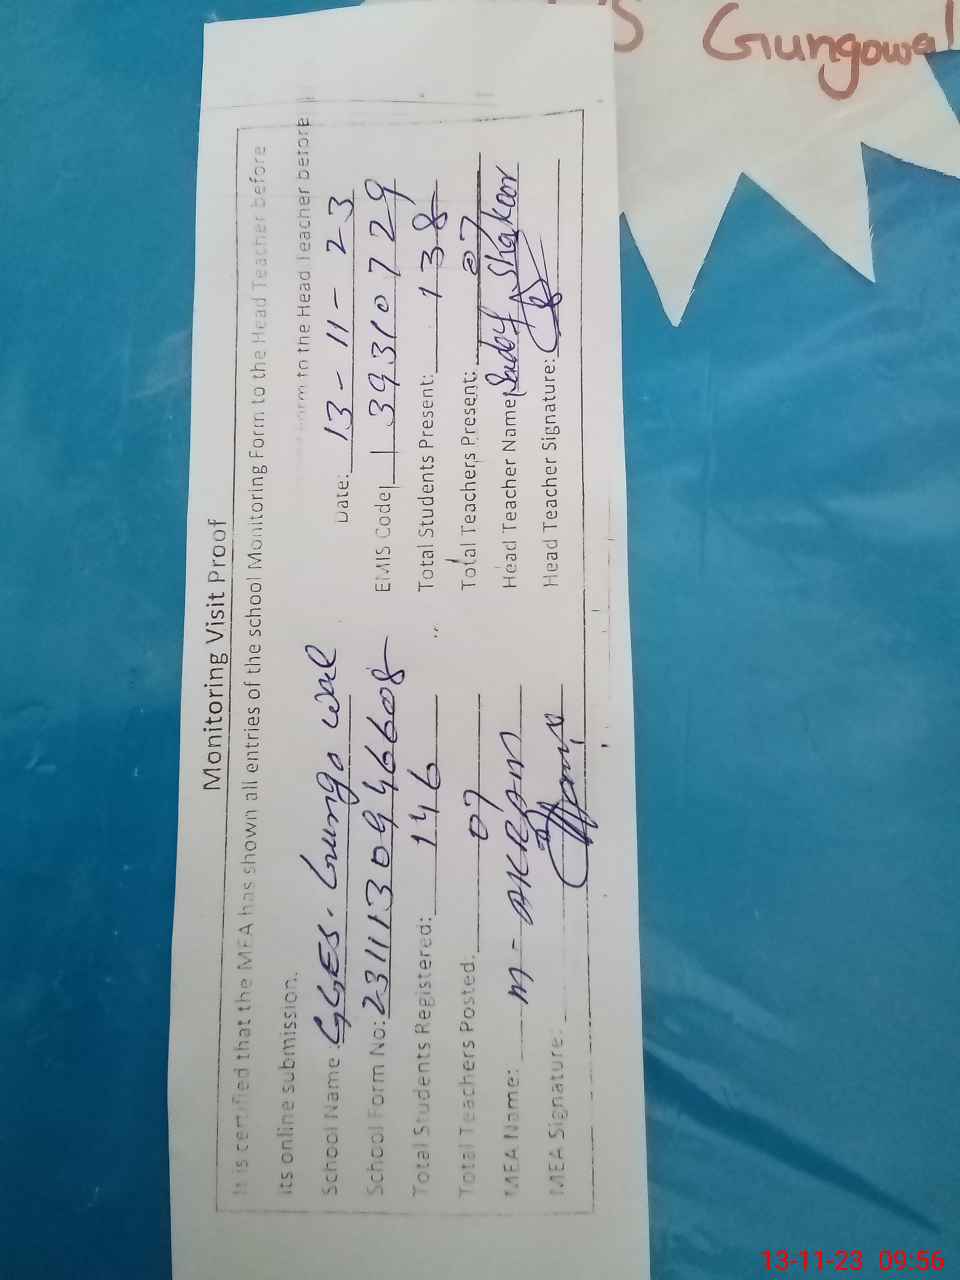 S Gungowal
Monitoring Visit Proof
It is certified that the MEA has shown all entries of the school Monitoring Form to the Head Teacher before
Form to the Head Teacher before
its online submission.
School Name: GGES. Gungo wal Date: 13-11-23
School Form No: 2311130946608 EMIS Code: 39310729
Total Students Registered: 146 Total Students Present: 138
Total Teachers Posted: 07 Total Teachers Present: 07
MEA Name: M-AKRAM Head Teacher Name: Shakoor
MEA Signature: Head Teacher Signature:
13-11-23 09:56